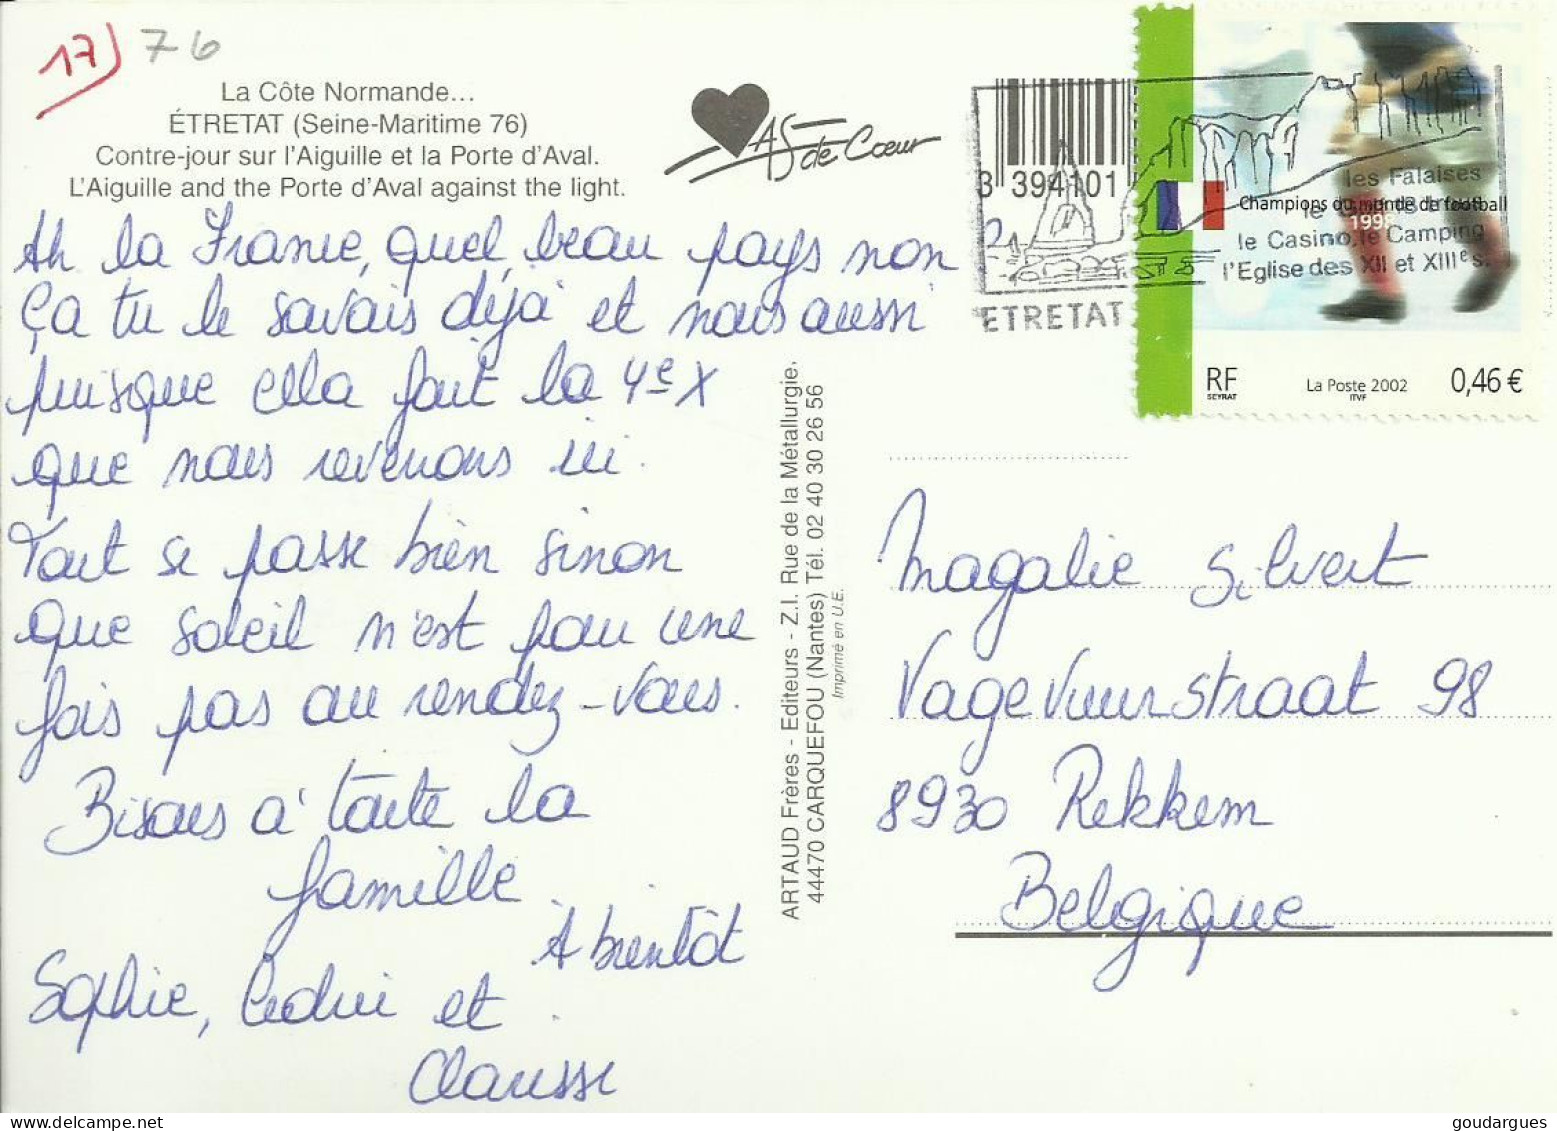 17) 76
La Côte Normande...
ÉTRETAT (Seine-Maritime 76)
Contre-jour sur l'Aiguille et la Porte d'Aval.
L'Aiguille and the Porte d'Aval against the light.
AS de Cœur
3 394101
Ah la France, quel beau pays non
Ça tu le savais déjà et nous aussi
puisque cela fait la 4e X
que nous revenons ici.
Tout se passe bien sinon
que soleil n'est pour une
fois pas au rendez-vous.
Bisous à toute la
famille.
A bientôt
Sophie, Cedric et
Claussse
ARTAUD Frères - Editeurs - Z.I. Rue de la Métallurgie.
44470 CARQUEFOU (Nantes) Tél. 02 40 30 26 56
Imprimé en U.E.
les Falaises
Champions du monde de football
1998
le Casino, le Camping
l'Eglise des XII et XIIIes.
ETRETAT
RF
SEYRAT
La Poste 2002
ITVF
0,46 €
Magalie Silvert
Vagevuurstraat 98
8930 Rekkem
Belgique
goudargues